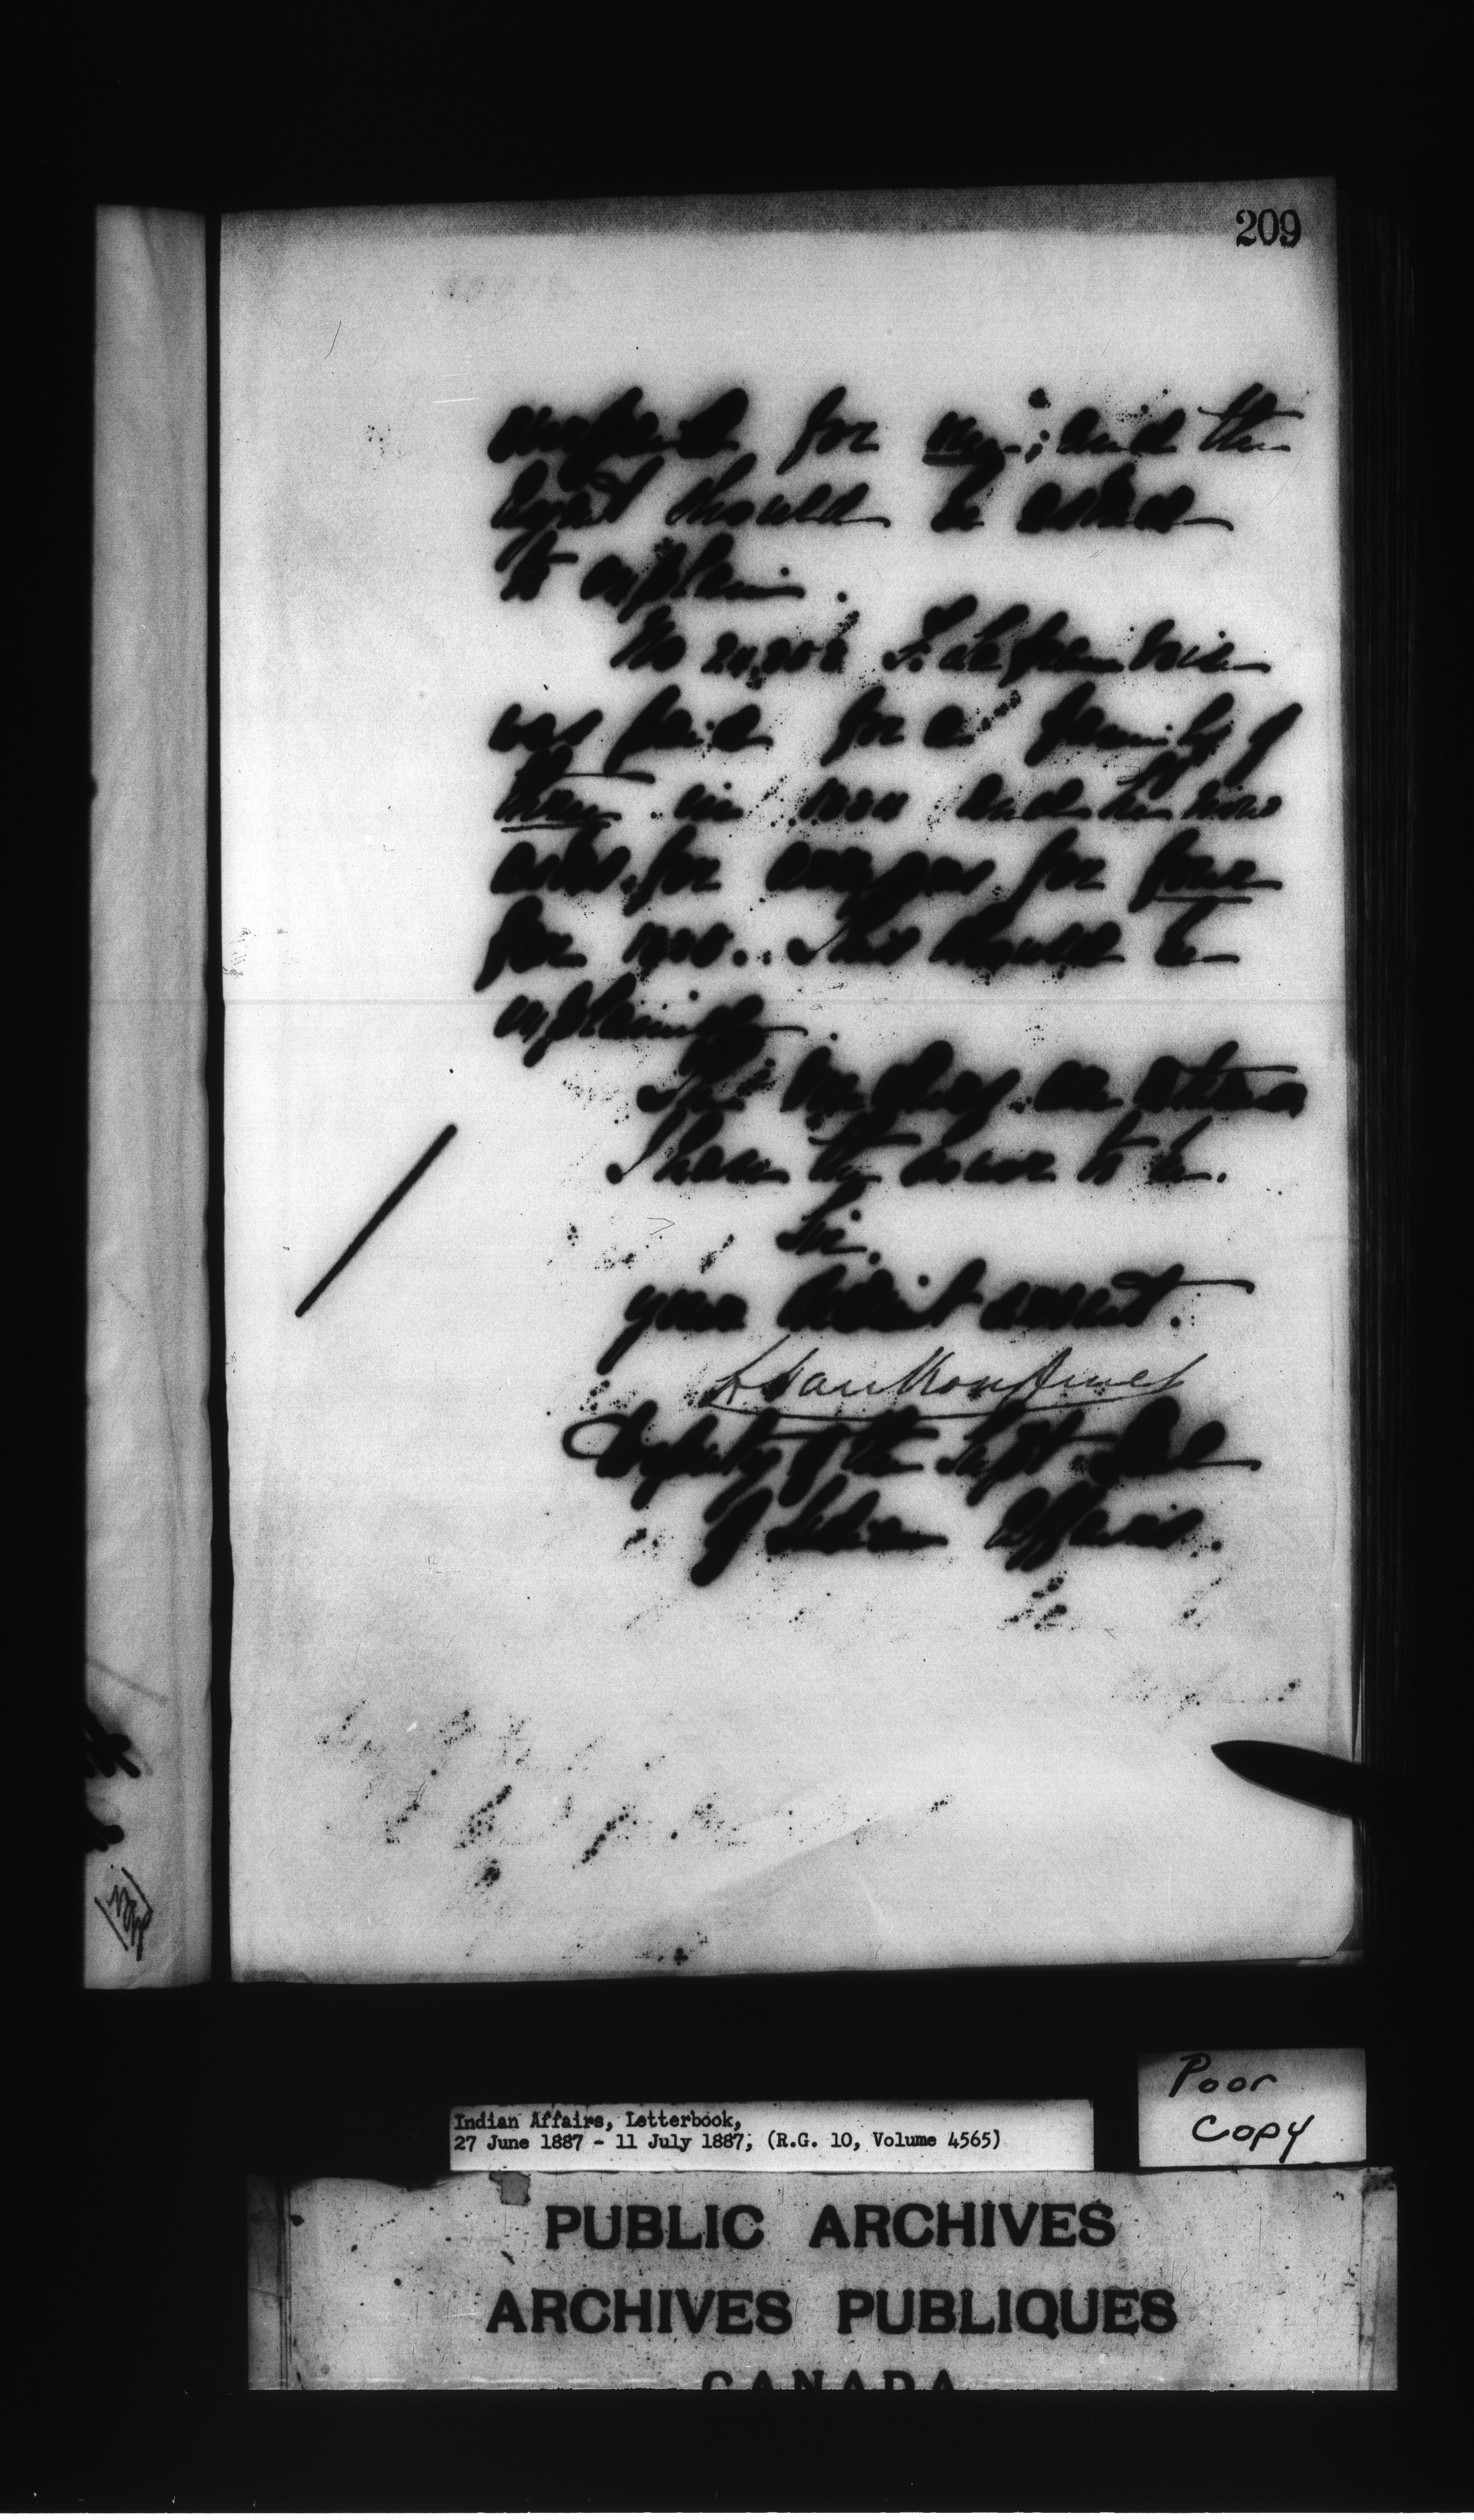 209
for one; and the
Agent should be asked
to explain.
No
was paid for a family of
three in and he now
asks for arrears for four
for This should be
explained.
The vouchers are returned
I have the honor to be.
Sir.
your obedient servant.
L Vankoughnet
Deputy of the Supt. Genl
of Indian Affairs.
Poor
Copy
Indian Affairs, Letterbook,
27 June 1887 - 11 July 1887, (R.G. 10, Volume 4565)
PUBLIC ARCHIVES
ARCHIVES PUBLIQUES
CANADA